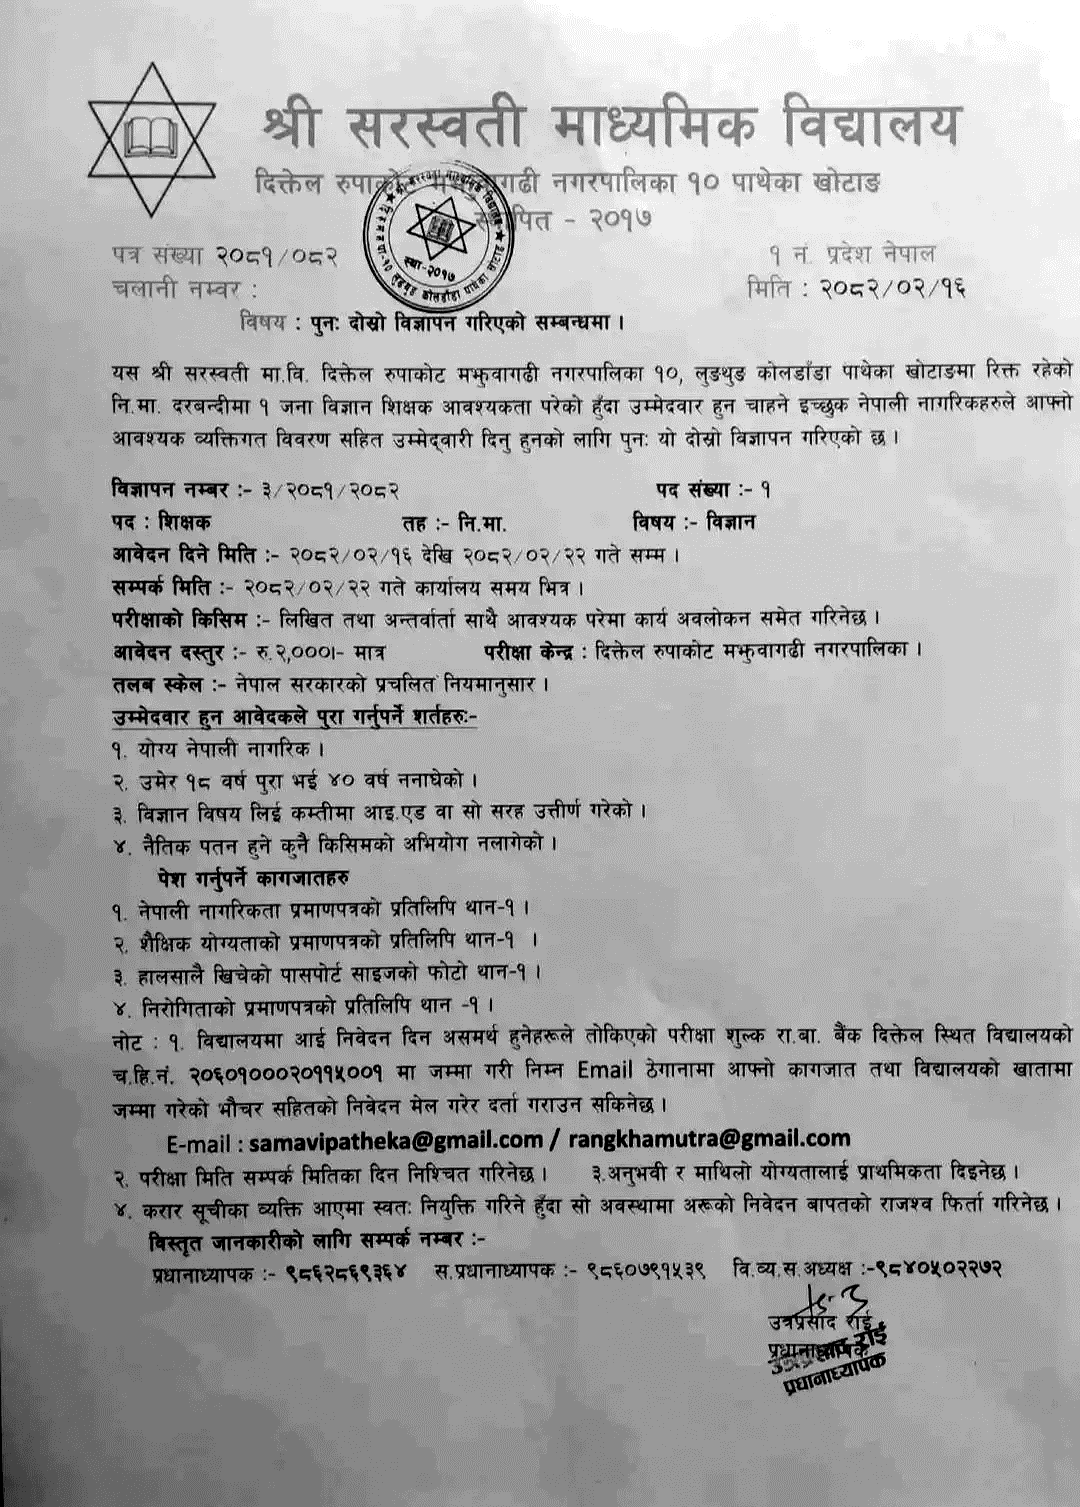 श्री सरस्वती माध्यमिक विद्यालय
दिक्तेल रुपाकोट मझुवागढी नगरपालिका १० पाथेका खोटाङ
स्थापित - २०१७
पत्र संख्या २०८१/०८२
१ नं. प्रदेश नेपाल
चलानी नम्वर :
मिति : २०८२/०२/१६
स्था-२०१७
विषय : पुनः दोस्रो विज्ञापन गरिएको सम्बन्धमा ।
यस श्री सरस्वती मा.वि. दिक्तेल रुपाकोट मझुवागढी नगरपालिका १०, लुङथुङ कोलडाँडा पाथेका खोटाङमा रिक्त रहेको
नि.मा. दरबन्दीमा १ जना विज्ञान शिक्षक आवश्यकता परेको हुँदा उम्मेदवार हुन चाहने इच्छुक नेपाली नागरिकहरुले आफ्नो
आवश्यक व्यक्तिगत विवरण सहित उम्मेद्वारी दिनु हुनको लागि पुनः यो दोस्रो विज्ञापन गरिएको छ ।
विज्ञापन नम्बर :- ३/२०८१/२०८२ पद संख्या :- १
पद : शिक्षक तह :- नि.मा. विषय :- विज्ञान
आवेदन दिने मिति :- २०८२/०२/१६ देखि २०८२/०२/२२ गते सम्म ।
सम्पर्क मिति :- २०८२/०२/२२ गते कार्यालय समय भित्र ।
परीक्षाको किसिम :- लिखित तथा अन्तर्वार्ता साथै आवश्यक परेमा कार्य अवलोकन समेत गरिनेछ ।
आवेदन दस्तुर :- रु.२,०००।- मात्र परीक्षा केन्द्र : दिक्तेल रुपाकोट मझुवागढी नगरपालिका ।
तलब स्केल :- नेपाल सरकारको प्रचलित नियमानुसार ।
उम्मेदवार हुन आवेदकले पुरा गर्नुपर्ने शर्तहरुः-
१. योग्य नेपाली नागरिक ।
२. उमेर १८ वर्ष पुरा भई ४० वर्ष ननाघेको ।
३. विज्ञान विषय लिई कम्तीमा आइ.एड वा सो सरह उत्तीर्ण गरेको ।
४. नैतिक पतन हुने कुनै किसिमको अभियोग नलागेको ।
पेश गर्नुपर्ने कागजातहरु
१. नेपाली नागरिकता प्रमाणपत्रको प्रतिलिपि थान-१ ।
२. शैक्षिक योग्यताको प्रमाणपत्रको प्रतिलिपि थान-१ ।
३. हालसालै खिचेको पासपोर्ट साइजको फोटो थान-१ ।
४. निरोगिताको प्रमाणपत्रको प्रतिलिपि थान -१ ।
नोट : १. विद्यालयमा आई निवेदन दिन असमर्थ हुनेहरूले तोकिएको परीक्षा शुल्क रा.बा. बैंक दिक्तेल स्थित विद्यालयको
च.हि.नं. २०६०१०००२०११५००१ मा जम्मा गरी निम्न Email ठेगानामा आफ्नो कागजात तथा विद्यालयको खातामा
जम्मा गरेको भौचर सहितको निवेदन मेल गरेर दर्ता गराउन सकिनेछ ।
E-mail : samavipatheka@gmail.com / rangkhamutra@gmail.com
२. परीक्षा मिति सम्पर्क मितिका दिन निश्चित गरिनेछ । ३.अनुभवी र माथिलो योग्यतालाई प्राथमिकता दिइनेछ ।
४. करार सूचीका व्यक्ति आएमा स्वतः नियुक्ति गरिने हुँदा सो अवस्थामा अरूको निवेदन बापतको राजश्व फिर्ता गरिनेछ ।
विस्तृत जानकारीको लागि सम्पर्क नम्बर :-
प्रधानाध्यापक :- ९८६२८६९३६४ स.प्रधानाध्यापक :- ९८६०७९१५३९ वि.व्य.स.अध्यक्ष :-९८४०५०२२७२
उत्रप्रसाद राई
प्रधानाध्यापक
उत्रप्रसाद राई
प्रधानाध्यापक